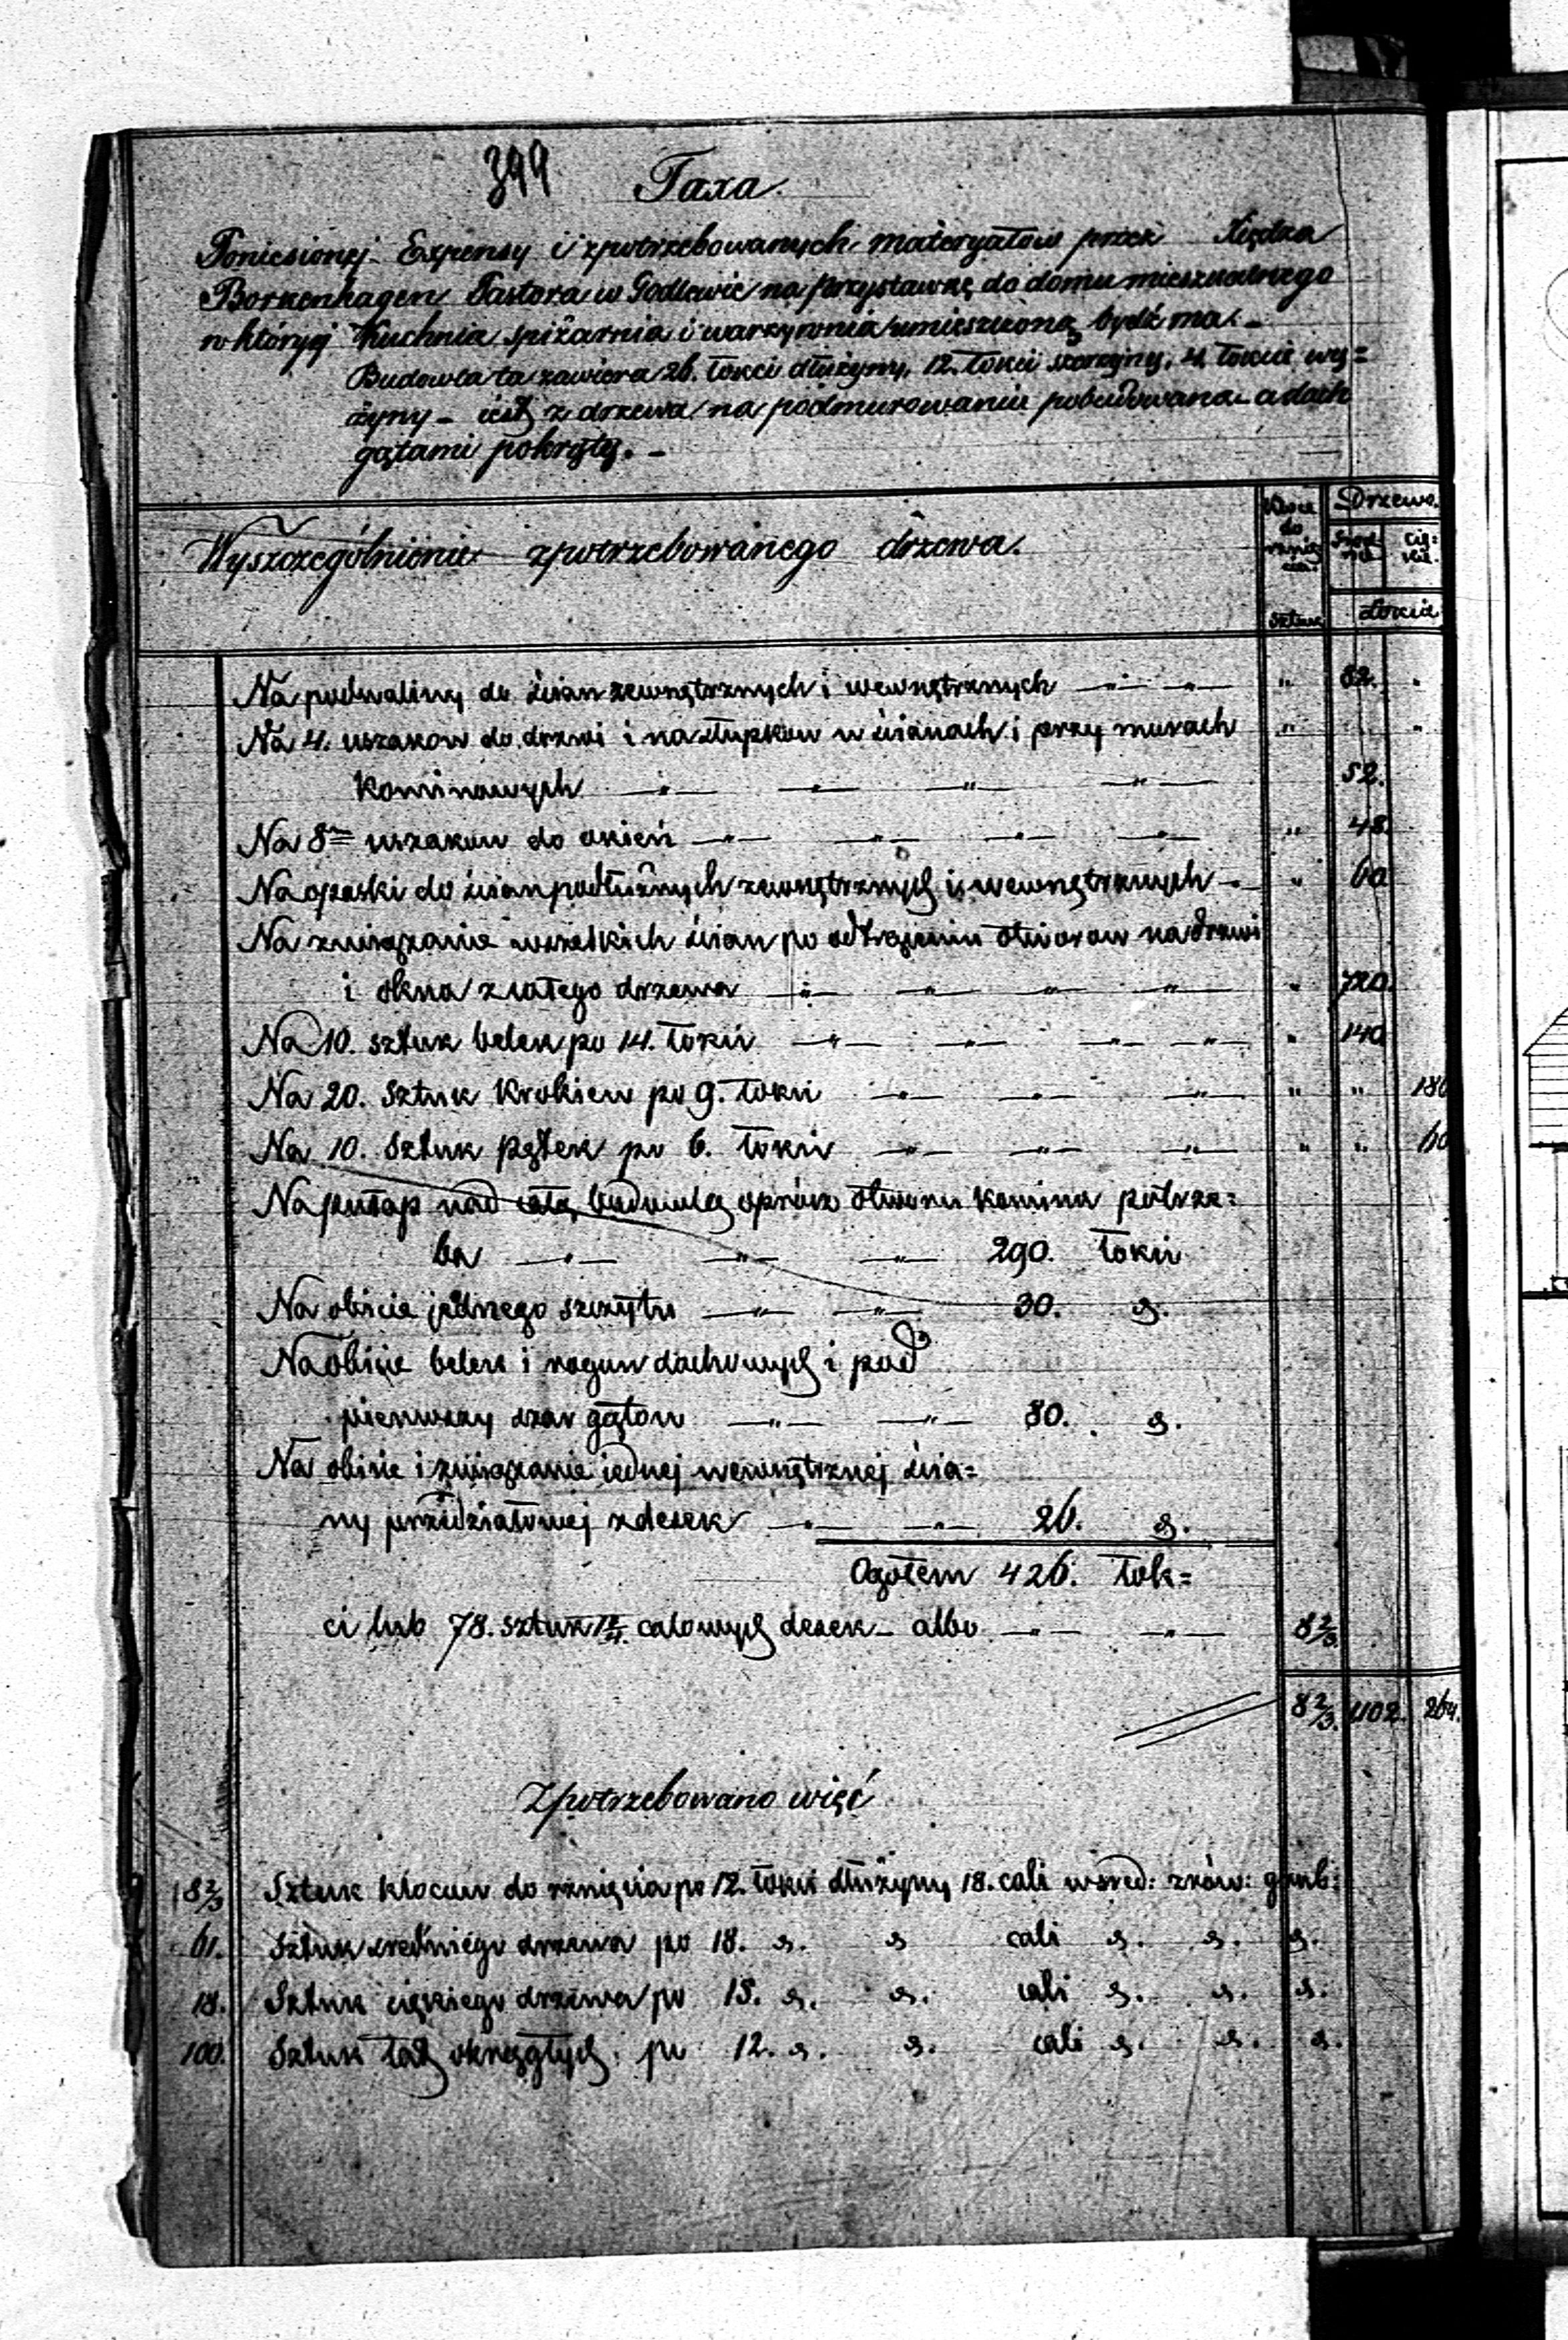 399
Taxa
Poniesionej Expensy i zpotrzebowanych materyałow przez Xiędza
Borkenhagen Pastora w Godlewie na przystawkę do domu mieszkalnego
w któryj Kuchnia spiżarnia i warzywnia umieszczoną bydź ma. -
Budowla ta zawiera 26. łokci dłużyny, 12. łokci szerzyny, 4. łokcie wy=
żyny - iest z drzewa na podmurowaniu pobudowana - a dach
gątami pokryty. -
Wyszczegolnienie zpotrzebowanego drzewa.
do rznię cia. Sztuk
Drzewo.
Śred- nie
cię= kie.
Łokcie
Na podwaliny do ścian zewnętrznych i wewnętrznych —"— —"— " 82. "
Na 4. uszakow do drzwi i na słupkow w ścianach i przy murach " "
Kominowych —"— —"— —"— —"— 52.
Na 8m uszakow do okień —"— —"— —"— —"— " 48.
Na opaski do ścian podłużnych zewnętrznych i wewnętrznych - " 60
Na związanie wszelkich ścian po odtrąceniu otworow na drzwi
i okna z całego drzewa —"— —"— —"— —"— " 720.
Na 10. sztuk belek po 14. łokci —"— —"— —"— —"— " 140
Na 20. sztuk Krokiew po 9. łokci —"— —"— —"— " " 180
Na 10. Sztuk pętek po 6. łokci —"— —"— —"— " " 60
Na pułap nad całą budowlą oprócz otworu komina potrze=
ba —"— —"— —"— 290. łokci
Na obicie jednego szczytu —"— —"— 30. s.
Na obicie belek i rogow dachowych i pod
pierwszy szar gątow —"— —"— 80. s.
Na obicie i związanie iednej wewnętrznej ścia=
ny przedziałowej z desek —"— —"— 26. s.
Ogołem 426. łok=
ci lub 78. sztuk 1¼. calowych desek - albo —"— —"— 8⅔
8⅔. 1102. 264.
Zpotrzebowano więć
8⅔ Sztuk klocow do rznięcia po 12. łokci dłużyny 18. cali w śred: zków: grub:
61. Sztuk sredniego drzewa po 18. s. s cali s. s. s.
18. Sztuk ciękiego drzewa po 15. s. s. cali s. s. s.
100. Sztuk łat okrągłych po 12. s. s. cali s. s. s.